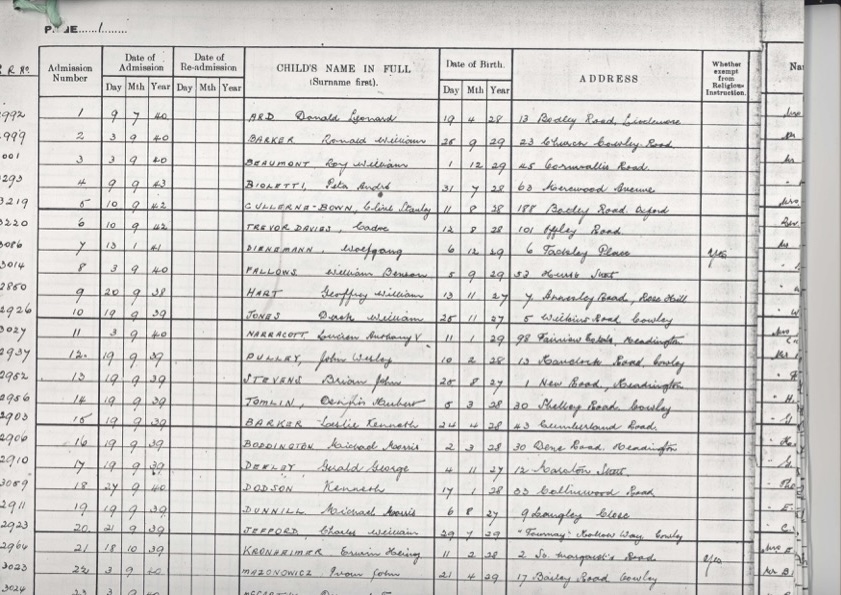 PAGE......1......
R. No. Admission Number Date of Admission Day Mth Year Date of Re-admission Day Mth Year CHILD'S NAME IN FULL (Surname first). Date of Birth. Day Mth Year ADDRESS Whether exempt from Religious Instruction. Na
2992 1 9 7 40 ARD Donald Leonard 19 4 28 13 Bodley Road, Littlemore
2999 2 3 9 40 BARKER Ronald William 25 9 29 23 Church Cowley Road
001 3 3 9 40 BEAUMONT Roy William 1 12 29 45 Cornwallis Road
293 4 9 9 43 BIOLETTI, Peter André 31 7 28 63 Avenue
3219 5 10 9 42 CULLERNE-BOWN, Clive Stanley 11 8 28 188 Road Oxford
3220 6 10 9 42 TREVOR DAVIES, 12 8 28 101 Iffley Road
3086 7 13 1 41 DIENEMANN, Wolfgang 6 12 29 6 Tackley Place Yes
3014 8 3 9 40 FALLOWS William 5 9 29 53 Hurst Street
2850 9 20 9 38 HART Geoffrey William 13 11 27 7 Annesley Road, Rose Hill
2926 10 19 9 39 JONES Derek William 25 11 27 5 Wilkins Road Cowley
3027 11 3 9 40 NARRACOTT Anthony V. 11 1 29 98 Fairview Estate, Headington
2937 12. 19 9 39 PULLEY, John Wesley 10 2 28 13 Road, Cowley
2952 13 19 9 39 STEVENS Brian John 25 8 27 1 New Road, Headington
2956 14 19 9 39 TOMLIN, Herbert 5 3 28 30 Shelley Road Cowley
2903 15 19 9 39 BARKER Leslie Kenneth 24 4 28 43 Cumberland Road.
2906 16 19 9 39 BODDINGTON Michael Morris 2 3 28 30 Dene Road. Headington
2910 17 19 9 39 DEELEY Gerald George 4 11 27 12 Marston Street
3059 18 27 9 40 DODSON Kenneth 17 1 28 33 Collinwood Road
2911 19 19 9 39 DUNNILL Michael Morris 6 8 27 9 Langley Close
2923 20. 21 9 39 JEFFORD Charles William 29 7 29 Hollow Way, Cowley
2964 21 18 10 39 KRONHEIMER Erwin Heinz 11 2 28 2 St. Margaret's Road Yes
3023 22 3 9 40 MAZONOWICZ Ivan John 21 4 29 17 Bailey Road Cowley
3024 23 3 9 40